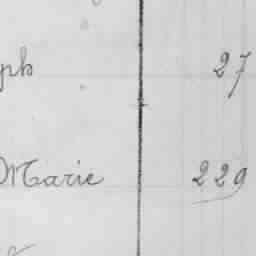 ph 27
Marie 229